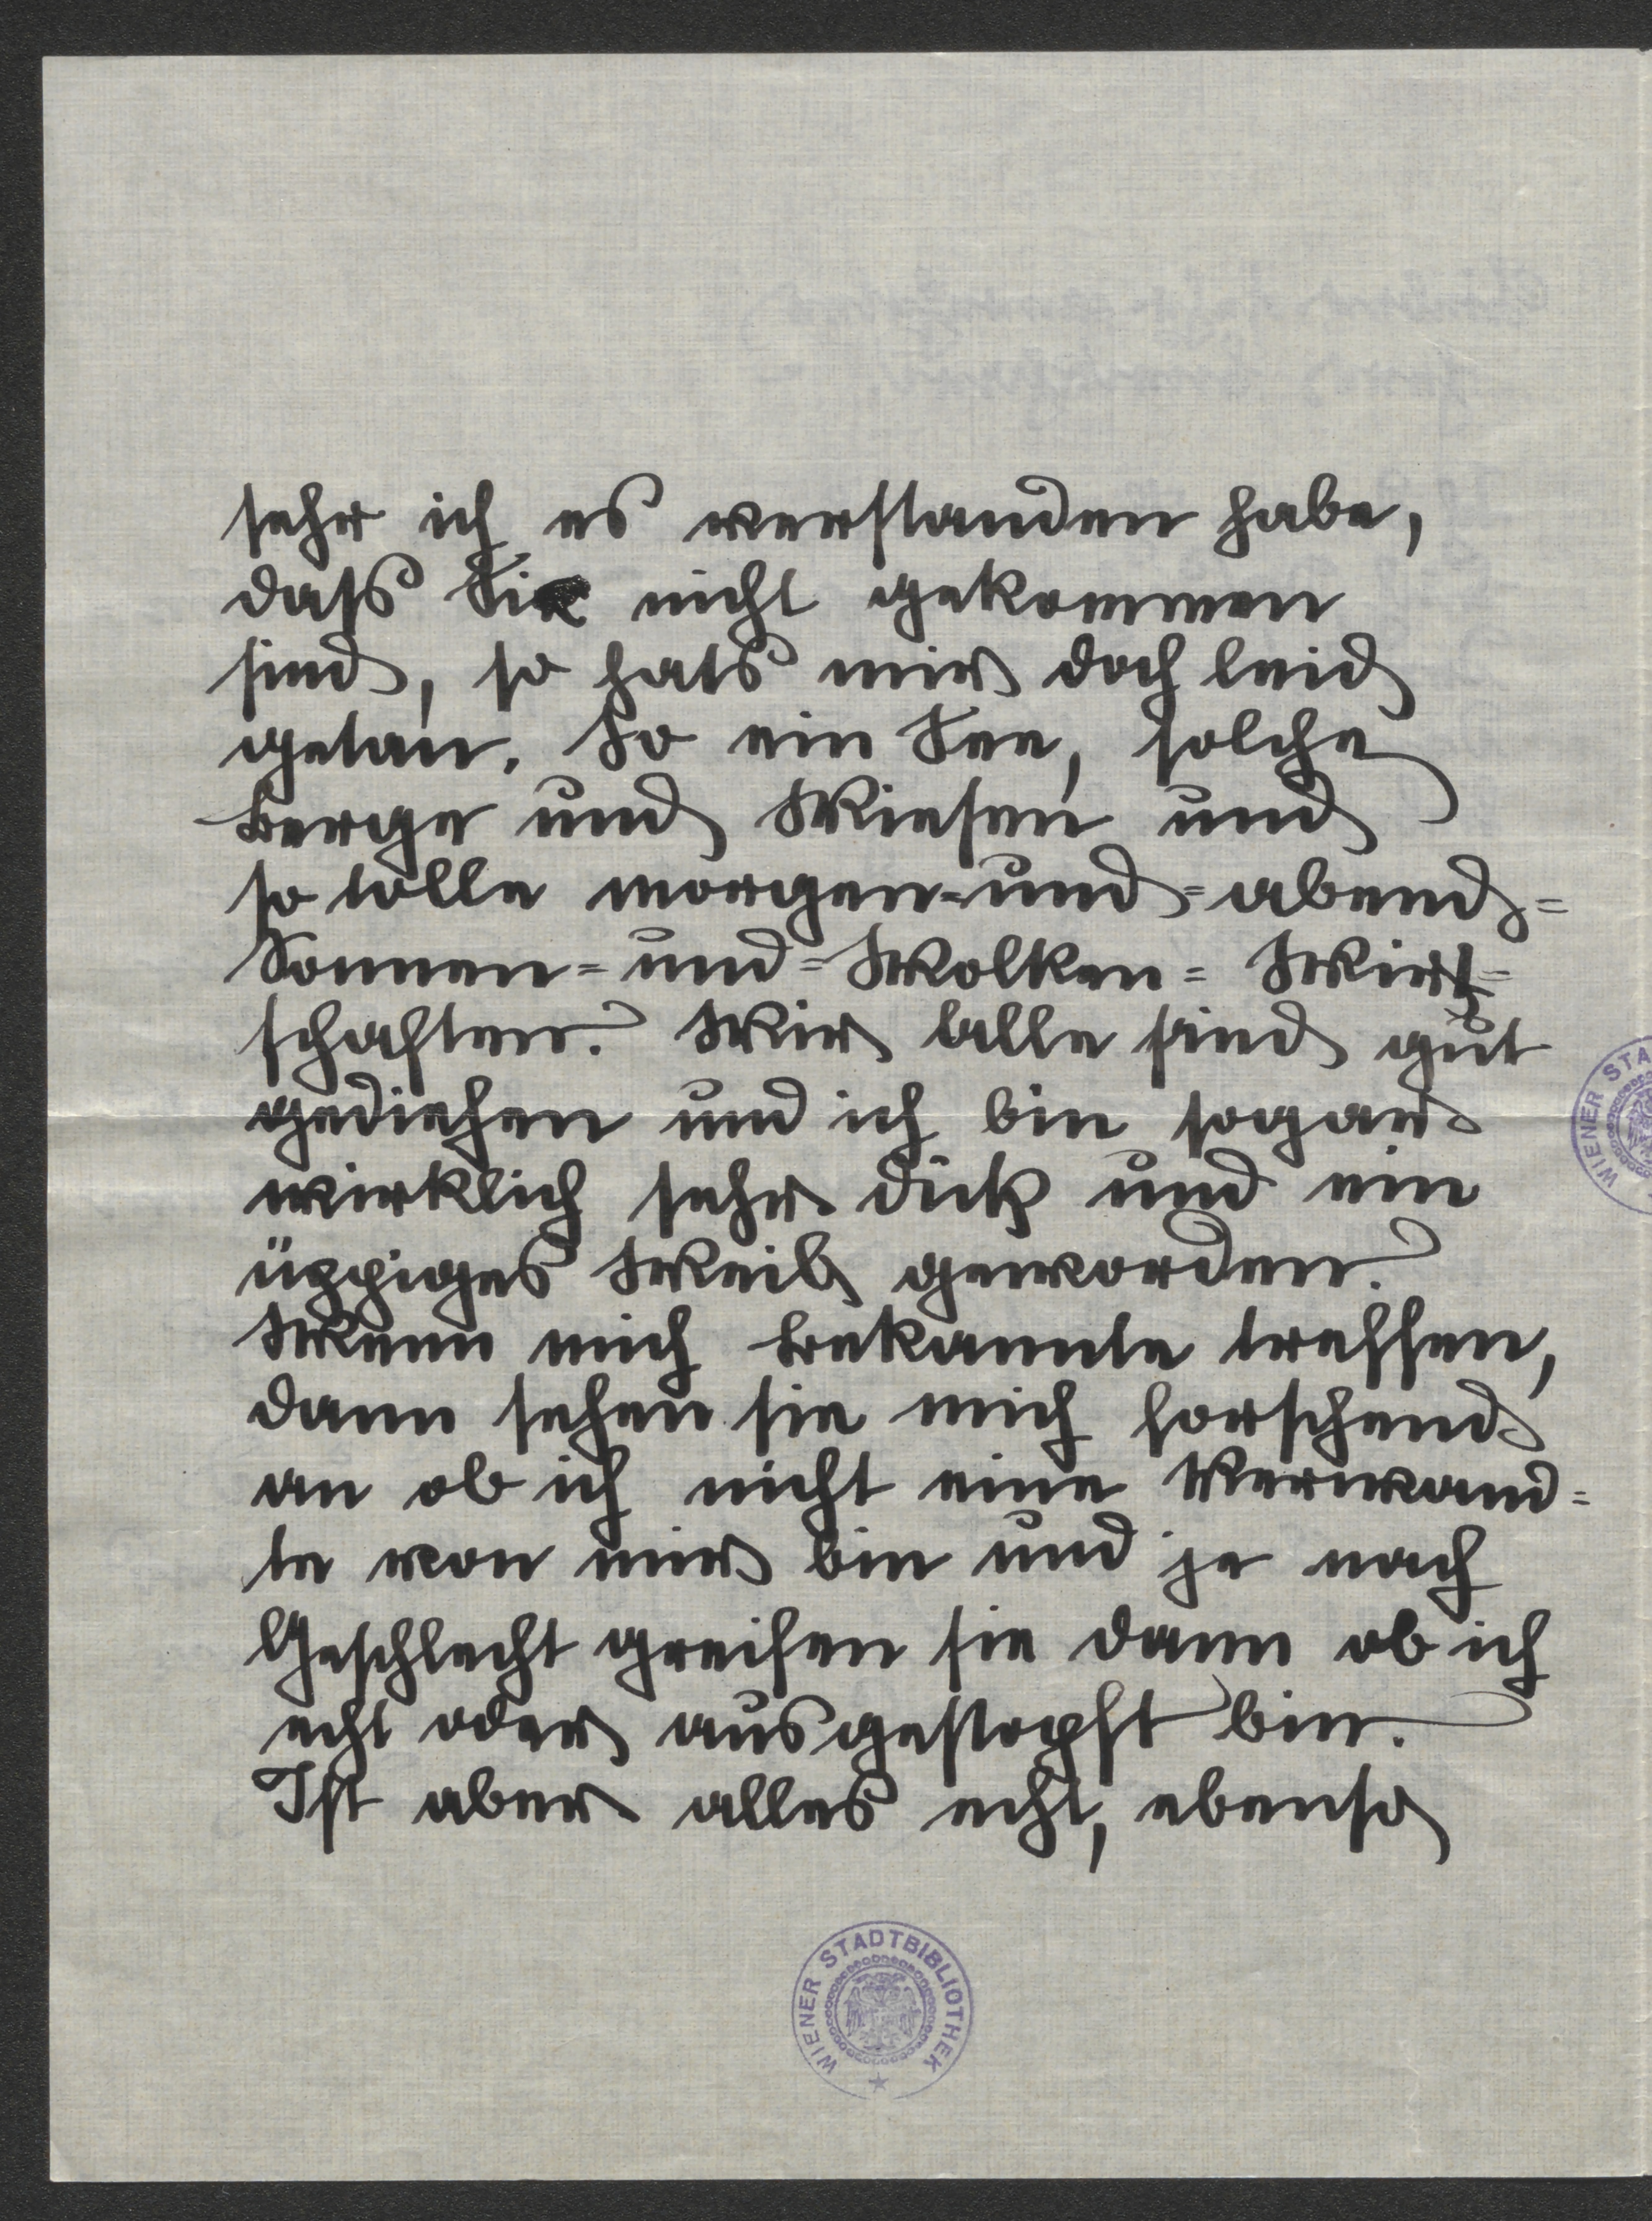 sehr ich es verstanden habe,
dass Sie nicht gekommen
sind, so hats mir doch leid
getan. So ein See, solche
Berge und Wiesen und
so tolle morgen=und=abend=
Sonnen=und=Wolken=Wirt=
schaften. Wir alle sind gut
gediehen und ich bin sogar
wirklich sehr dick und ein
üppiges Weib geworden.
Wenn mich Bekannte treffen,
dann sehen sie mich forschend
an ob ich nicht eine Verwand=
te von mir bin und je nach
Geschlecht greifen sie dann ob ich
echt oder ausgestopft bin.
Ist aber alles echt, ebenso
WIENER STADTBIBLIOTHEK
WIENER STA